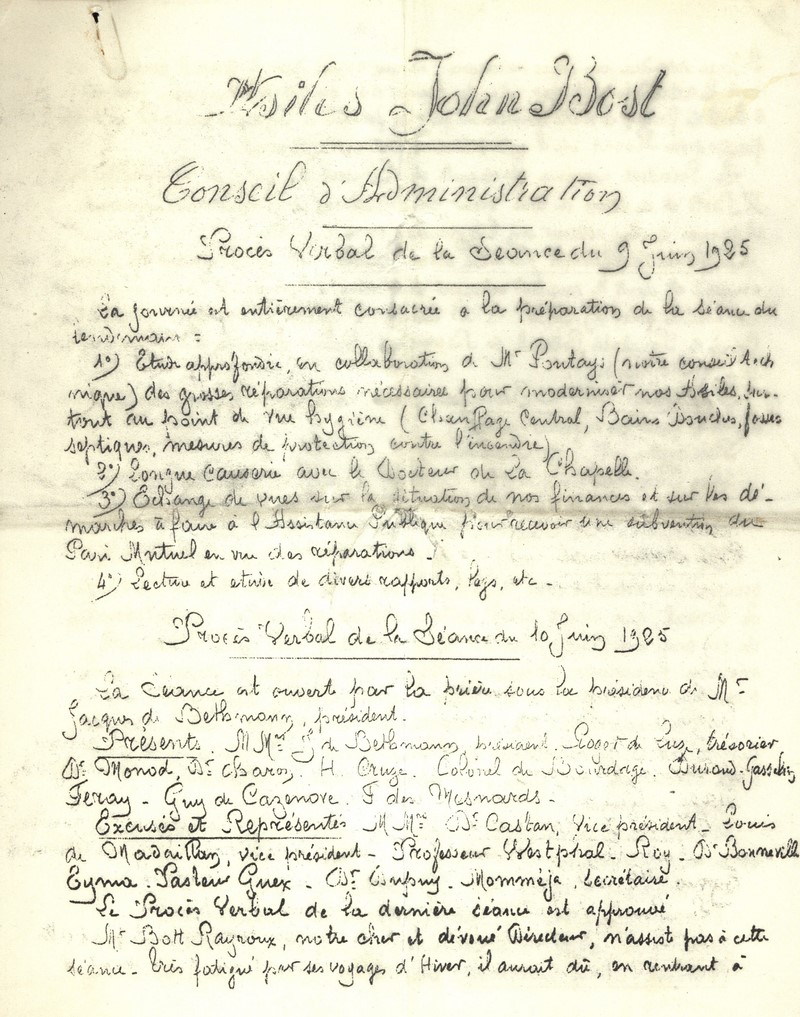 Asiles John Bost
Conseil d'Administration
Procès Verbal de la Séance du 9 Juin 1925
La journée est entièrement consacrée a la préparation de la séance du
lendemain :
1°) Etude approfondie, en collaboration de Mr Poutays (notre conseil tech
nique) des grosses réparations nécessaires pour moderniser nos Asiles, sur-
tout au point de vue hygiène (Chauffage Central, Bains Douches, fosses
septiques, mesures de protection contre l'incendie)
2°) Longue causerie avec le Docteur de La Chapelle.
3°) Echange de vues sur la situation de nos finances et sur les dé-
marches à faire à l'Assistance Publique pour recevoir une subvention du
Pari Mutuel en vue des réparations.
4°) Lecture et etude de divers rapports, legs, etc -
Procès Verbal de la Séance du 10 Juin 1925
La Séance est ouvert par la prière sous la présidence de Mr
Jacques de Bethmann, président.
Présents. MMrs J de Bethmann, président. Roger de Luze, trésorier
Dr Monod, Dr Charon. H. Cruze. Colonel de Bourdage. Durand-Gasselin
Feray - Guy de Cazenove. F des Mesnards -
Excusés et Représentés MMrs Dr Castan, Vice président - Louis
de Madaillan, vice président - Professeur Westphal. Roy. Dr Bonneville
Eyma. Pasteur Guex - Dr Dupuy. Momméja, Secrétaire.
Le Procès Verbal de la dernière séance est approuvé
Mr Bott Rayroux, notre cher et dévoué Directeur, n'assist pas à cette
séance - très fatigué par ses voyages d'Hiver, il aurait dû, en rentrant à